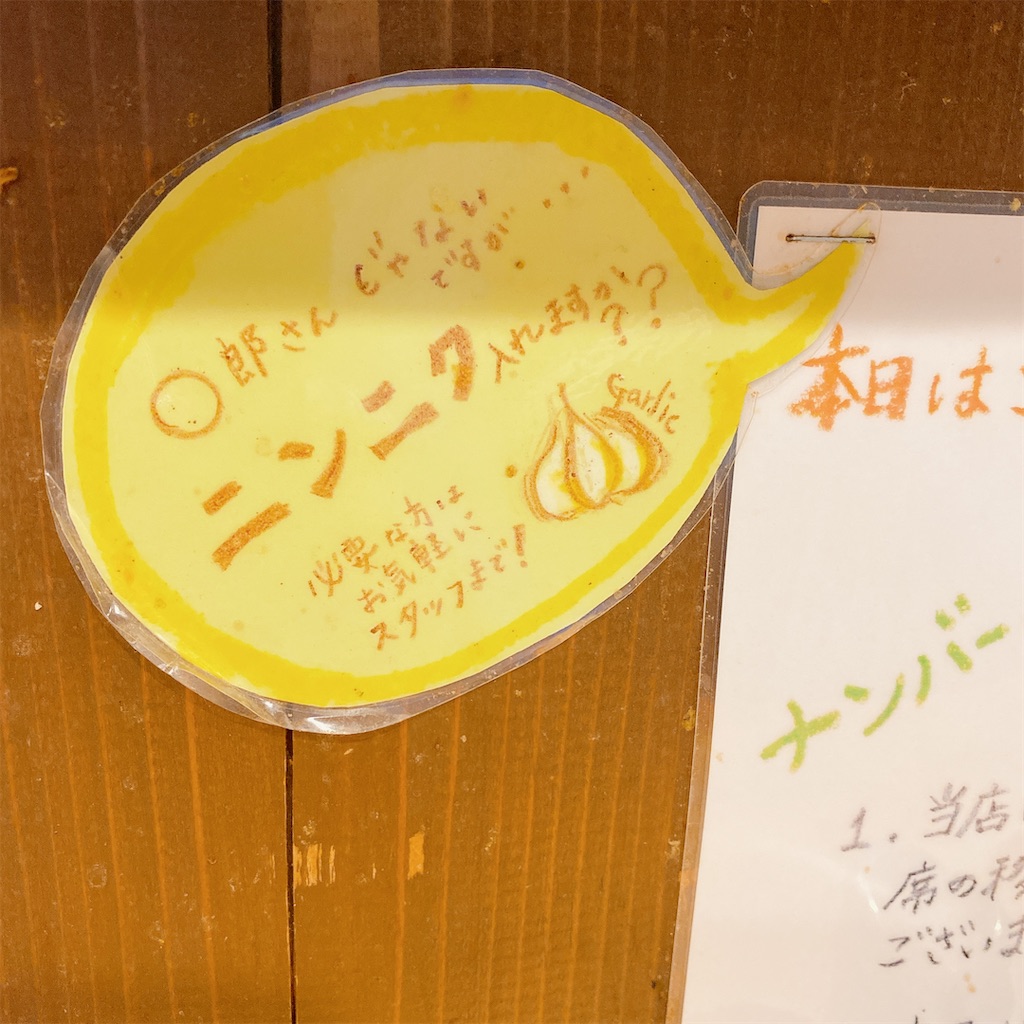 ○郎さん じゃない
ですが...
ニンニク 入れますか??
Garlic
必要な方は
お気軽に
スタッフまで!
本日は
ナンバー
1. 当店
席の移
ございま